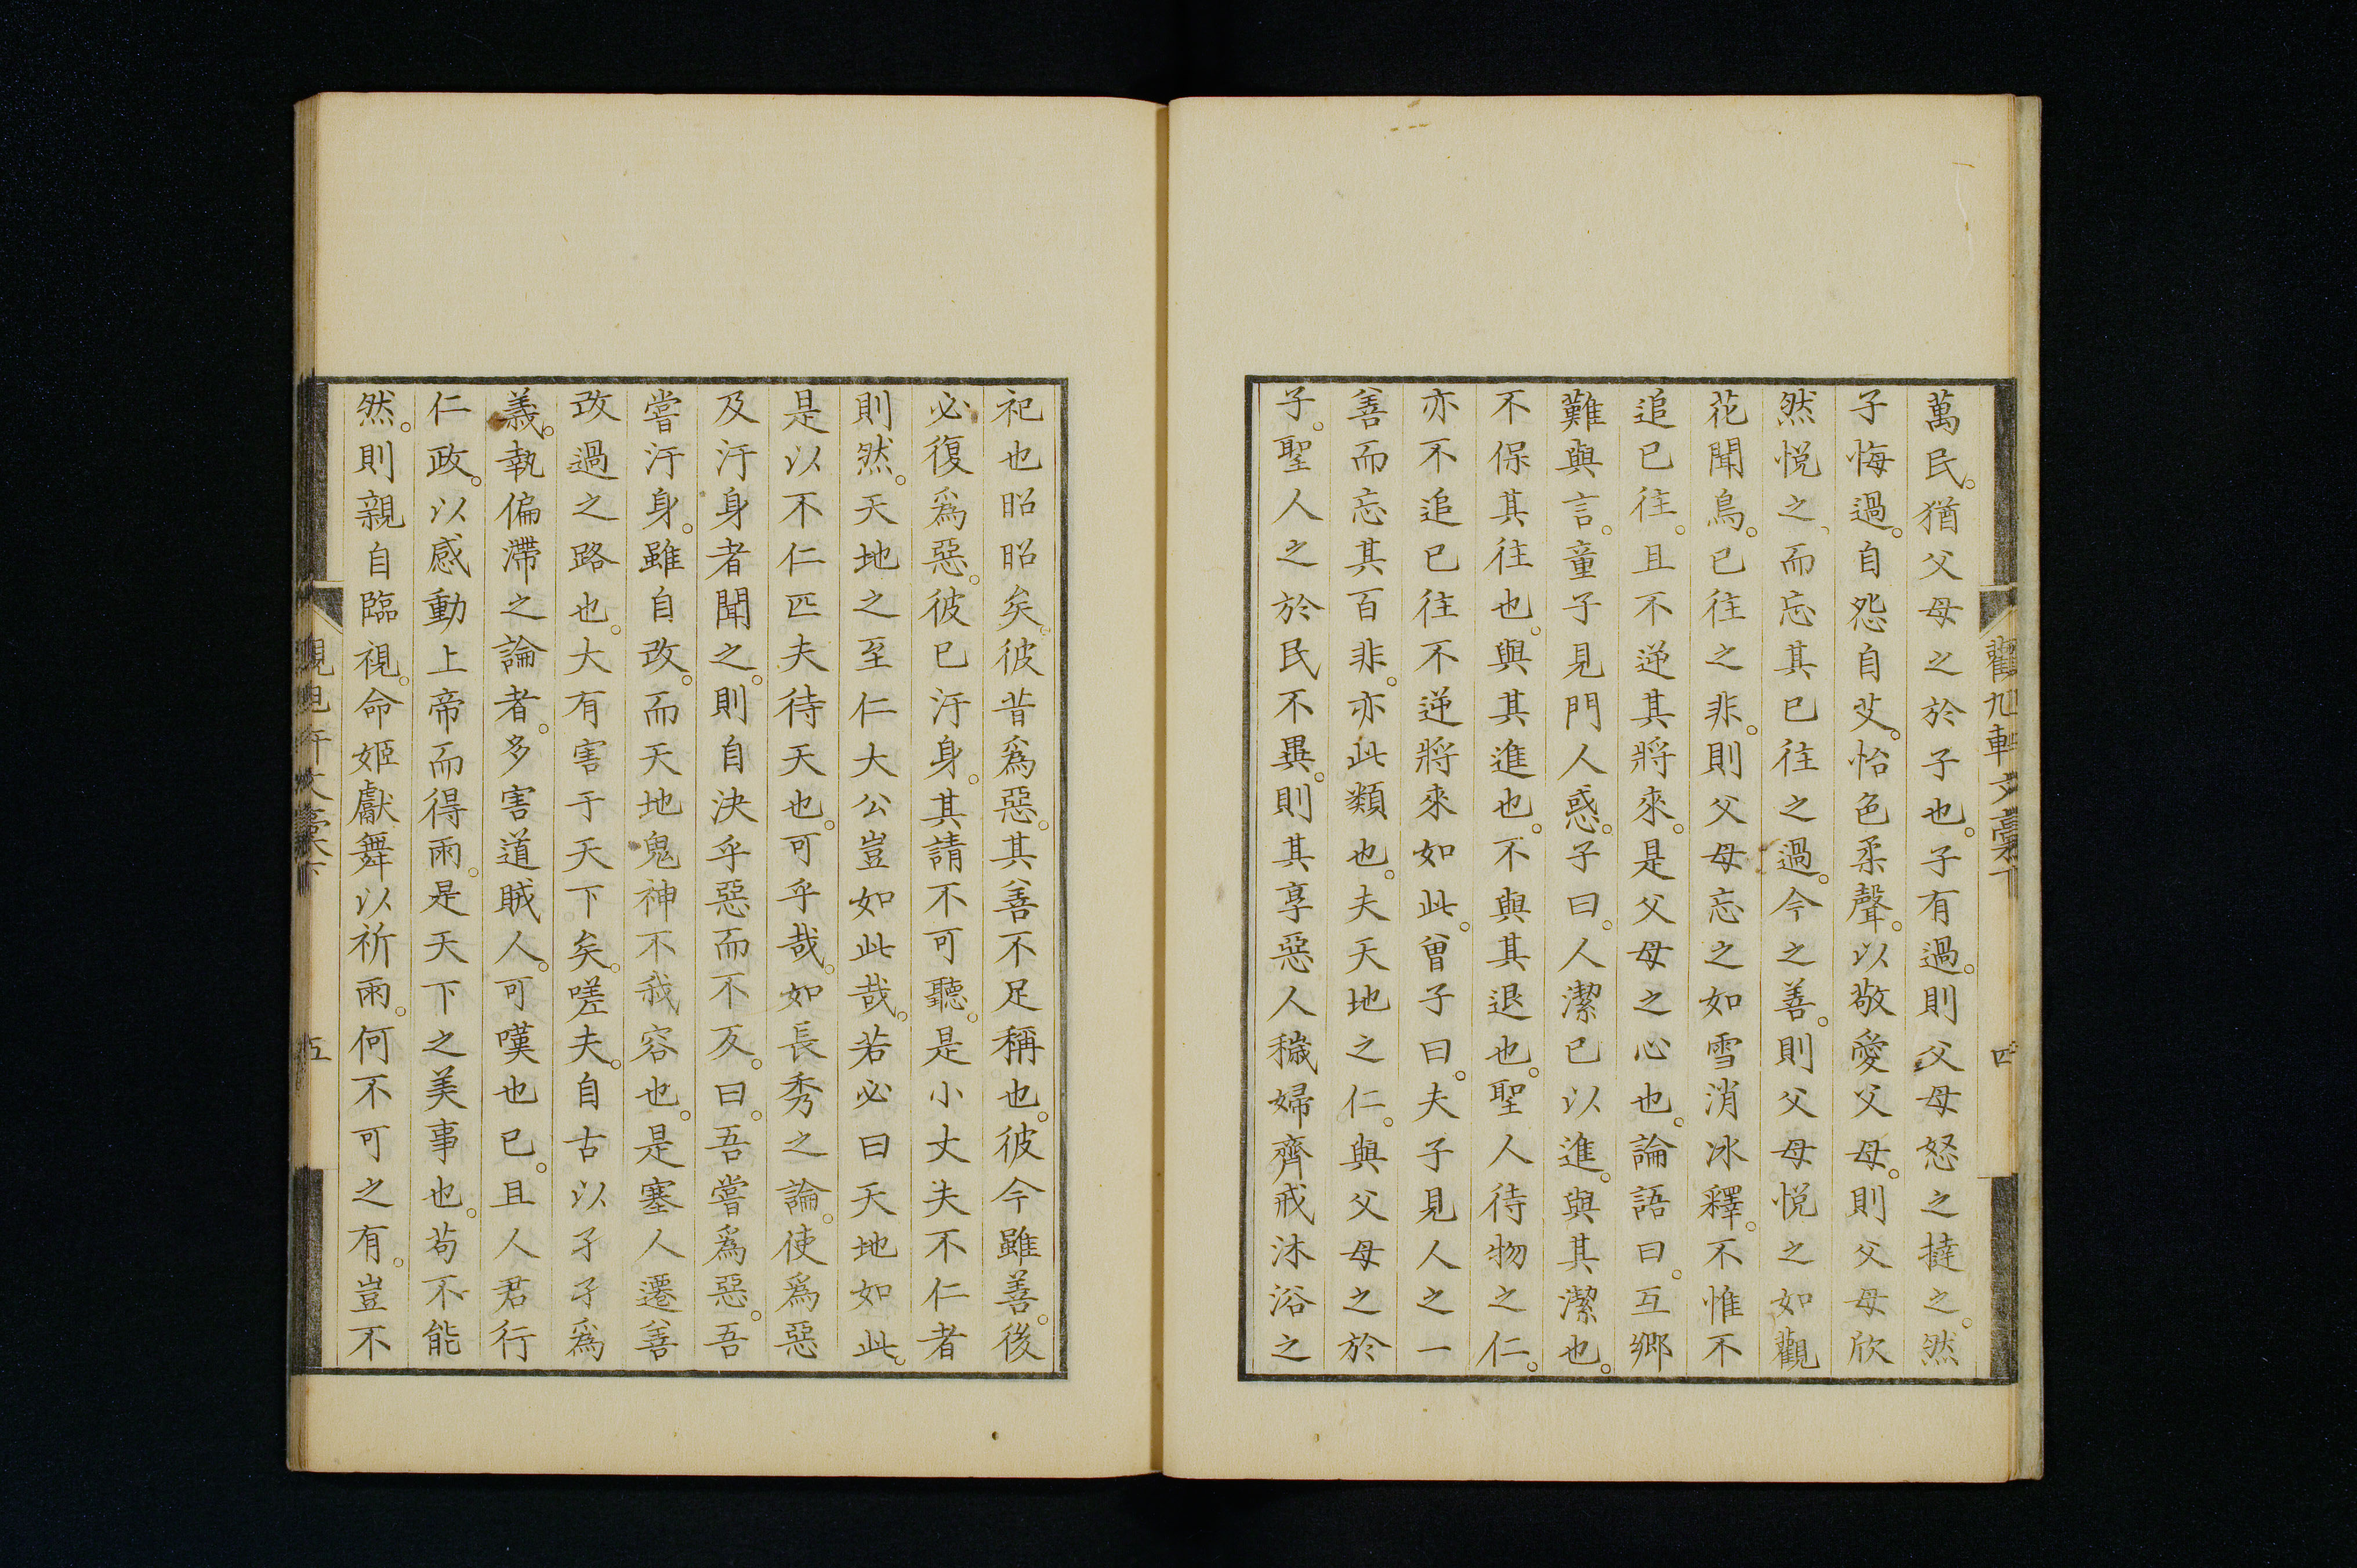 萬民。猶父母之於子也。子有過。則父母怒之撻之。然
子悔過。自怨自艾。怡色柔聲。以敬愛父母。則父母欣
然悅之、而忘其已往之過。今之善。則父母悅之如觀
花聞鳥。已往之非。則父母忘之如雪消冰釋。不惟不
追已往。且不逆其將來。是父母之心也。論語曰。互鄉
難與言。童子見門人惑。子曰。人潔已以進。與其潔也。
不保其往也。與其進也。不與其退也。聖人待物之仁。
亦不追已往不逆將來如此。曾子曰。夫子見人之一
善而忘其百非。亦此類也。夫天地之仁。與父母之於
子。聖人之於民不異。則其享惡人穢婦齊戒沐浴之
四
祀也昭昭矣。彼昔爲惡。其善不足稱也。彼今雖善。後
必復爲惡。彼已汙身。其請不可聽。是小丈夫不仁者
則然。天地之至仁大公豈如此哉。若必曰天地如此。
是以不仁匹夫待天也。可乎哉。如長秀之論。使爲惡
及汙身者聞之。則自決乎惡而不反。曰。吾嘗爲惡。吾
嘗汙身。雖自改。而天地鬼神不我容也。是塞人遷善
改過之路也。大有害于天下矣。嗟夫。自古以孑孑爲
義。執偏滯之論者。多害道賊人。可嘆也已。且人君行
仁政。以感動上帝而得雨。是天下之美事也。苟不能
然。則親自臨視。命姬獻舞以祈雨。何不可之有。豈不
五